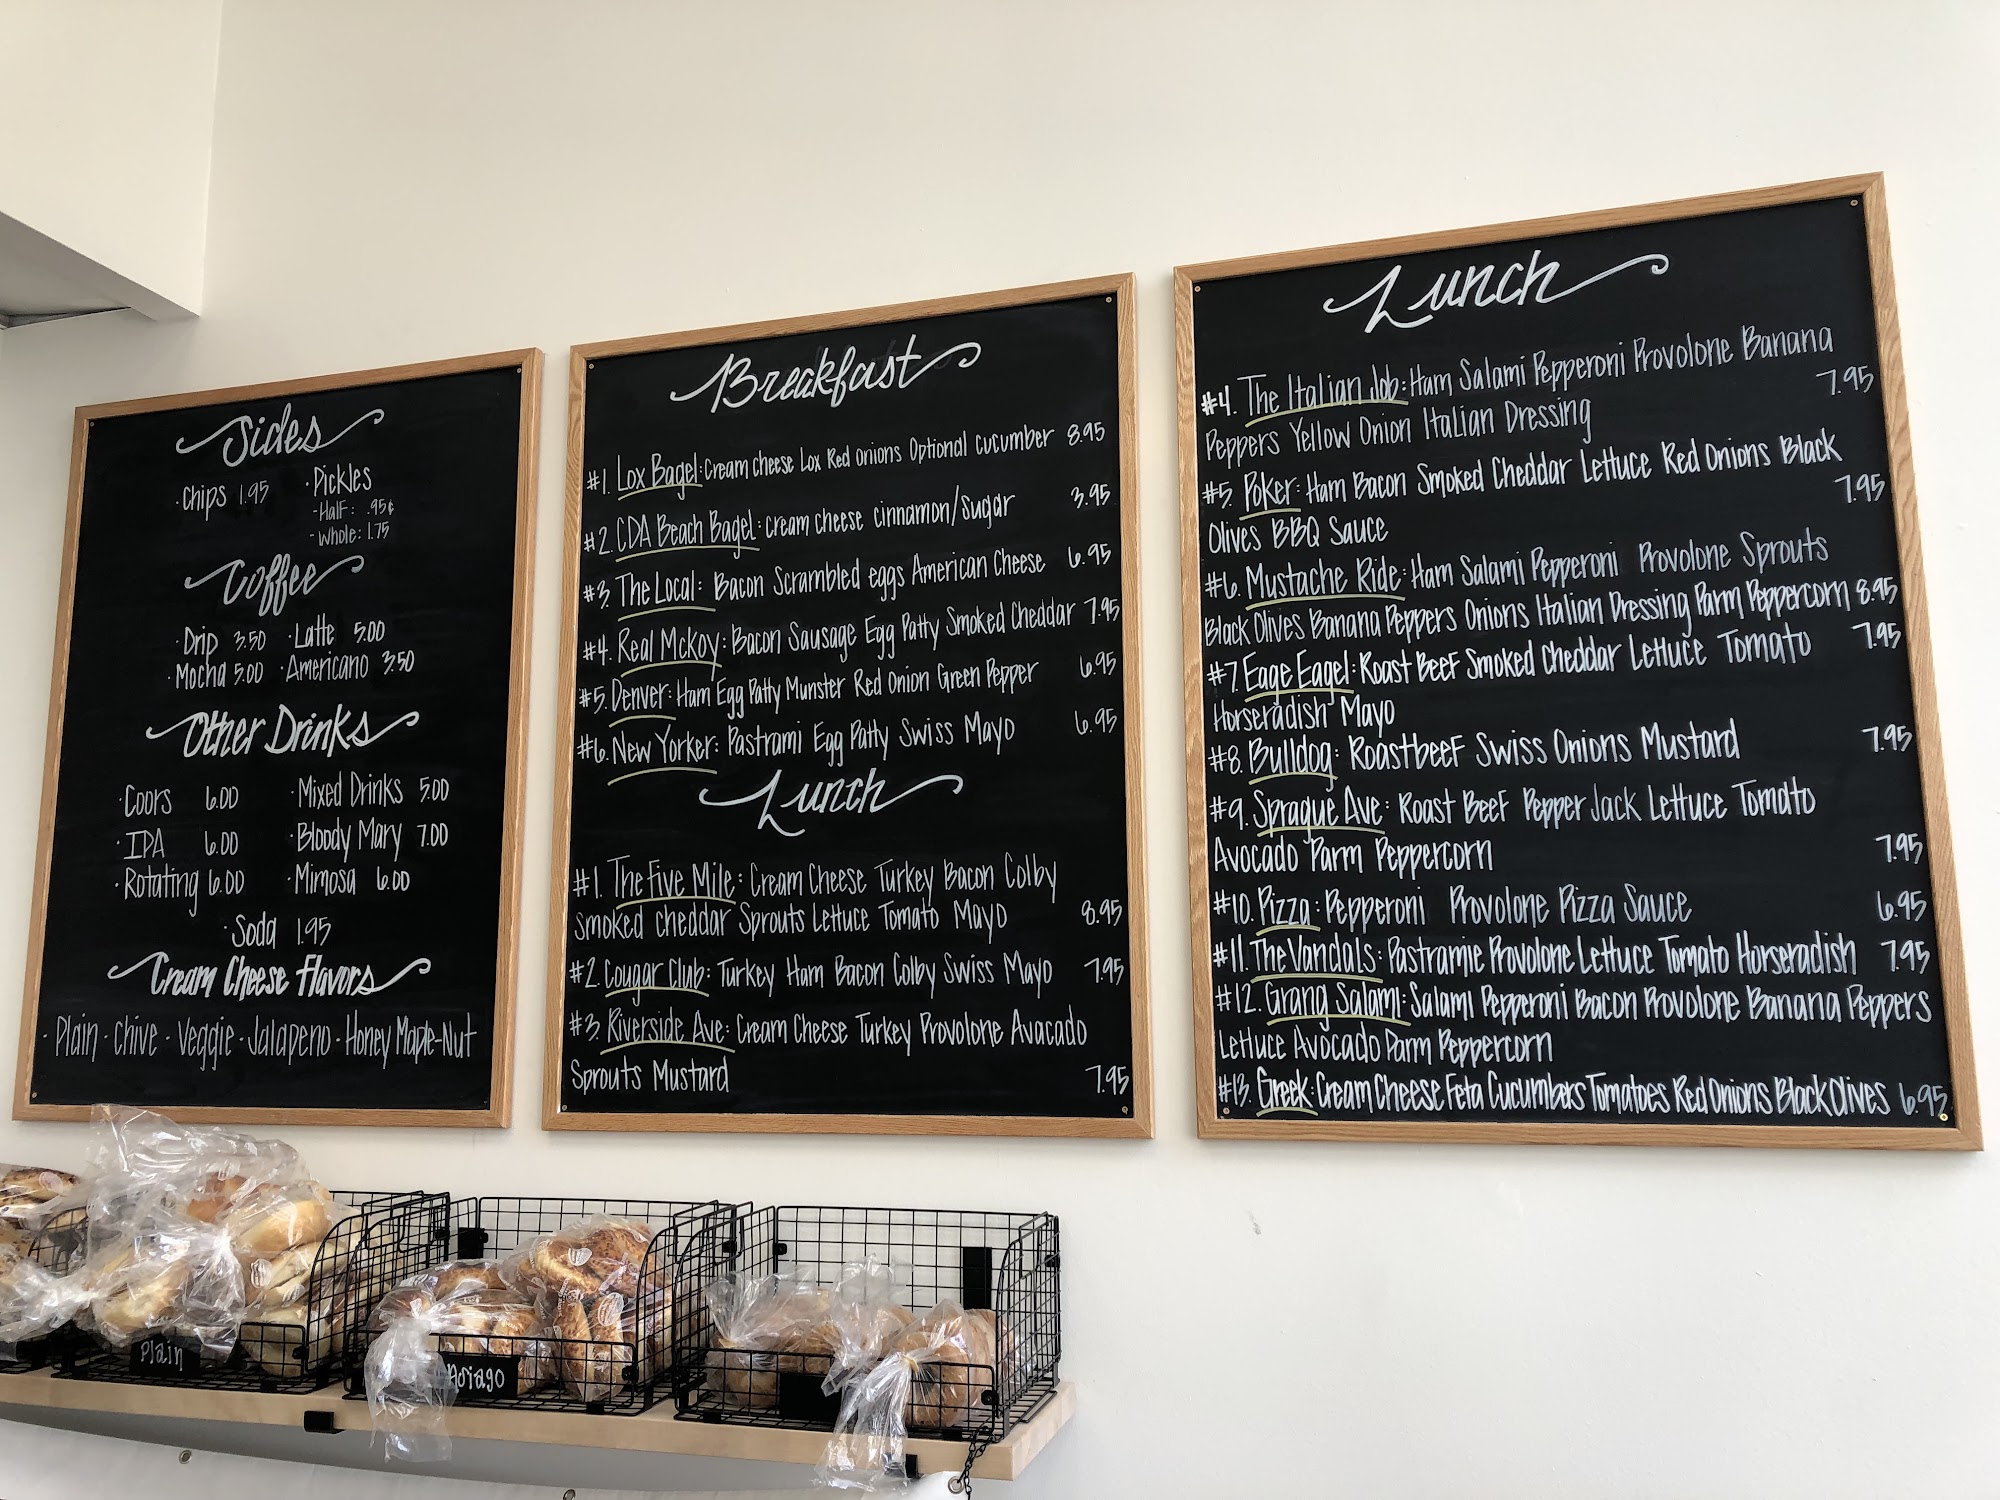 Sides
·chips 1.95
·Pickles
-Half: .95¢
-Whole: 1.75
Coffee
·Drip 3.50 ·Latte 5.00
·Mocha 5.00 ·Americano 3.50
Other Drinks
·Coors 6.00 ·Mixed Drinks 5.00
·IPA 6.00 ·Bloody Mary 7.00
·Rotating 6.00 ·Mimosa 6.00
·Soda 1.95
Cream Cheese Flavors
·Plain·chive·Veggie·Jalapeno·Honey Maple-Nut
Breakfast
#1. Lox Bagel: Cream cheese Lox Red onions Optional cucumber 8.95
#2. CDA Beach Bagel: cream cheese cinnamon/sugar 3.95
#3. The Local: Bacon Scrambled eggs American Cheese 6.95
#4. Real McKoy: Bacon Sausage Egg Patty Smoked Cheddar 7.95
#5. Denver: Ham Egg Patty Munster Red Onion Green Pepper 6.95
#6. New Yorker: Pastrami Egg Patty Swiss Mayo 6.95
Lunch
#1. The Five Mile: Cream Cheese Turkey Bacon Colby
smoked cheddar Sprouts Lettuce Tomato Mayo 8.95
#2. Cougar Club: Turkey Ham Bacon Colby Swiss Mayo 7.95
#3. Riverside Ave: Cream Cheese Turkey Provolone Avacado
Sprouts Mustard 7.95
Lunch
#4. The Italian Job: Ham Salami Pepperoni Provolone Banana
Peppers Yellow Onion Italian Dressing 7.95
#5. Poker: Ham Bacon Smoked Cheddar Lettuce Red Onions Black
Olives BBQ Sauce 7.95
#6. Mustache Ride: Ham Salami Pepperoni Provolone Sprouts
Black Olives Banana Peppers Onions Italian Dressing Parm Peppercorn 8.95
#7. Eage Eagel: Roast Beef Smoked Cheddar Lettuce Tomato 7.95
Horseradish Mayo
#8. Bulldog: Roastbeef Swiss Onions Mustard 7.95
#9. Sprague Ave: Roast Beef Pepper Jack Lettuce Tomato
Avocado Parm Peppercorn 7.95
#10. Pizza: Pepperoni Provolone Pizza Sauce 6.95
#11. The Vandals: Pastramie Provolone Lettuce Tomato Horseradish 7.95
#12. Grang Salami: Salami Pepperoni Bacon Provolone Banana Peppers
Lettuce Avocado Parm Peppercorn
#13. Greek: Cream Cheese Feta Cucumbers Tomatoes Red Onions Black Olives 6.95
Plain
Asiago